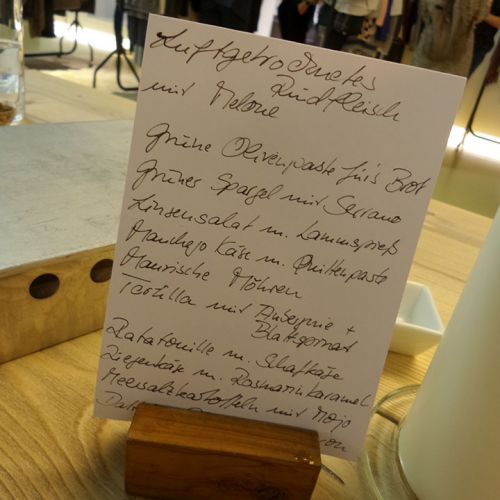 Luftgetrocknetes
Rindfleisch
mit Melone
grüne Olivenpaste für's Brot
grüner Spargel mit Serrano
Linsensalat m. Lammspieß
Manchego Käse m. Quittenpaste
Maurische Möhren
Tortilla mit Aubergine +
Blattspinat
Ratatouille m. Schafkäse
Ziegenkäse m. Rosmarinkaramel
Meersalzkartoffeln mit Mojo